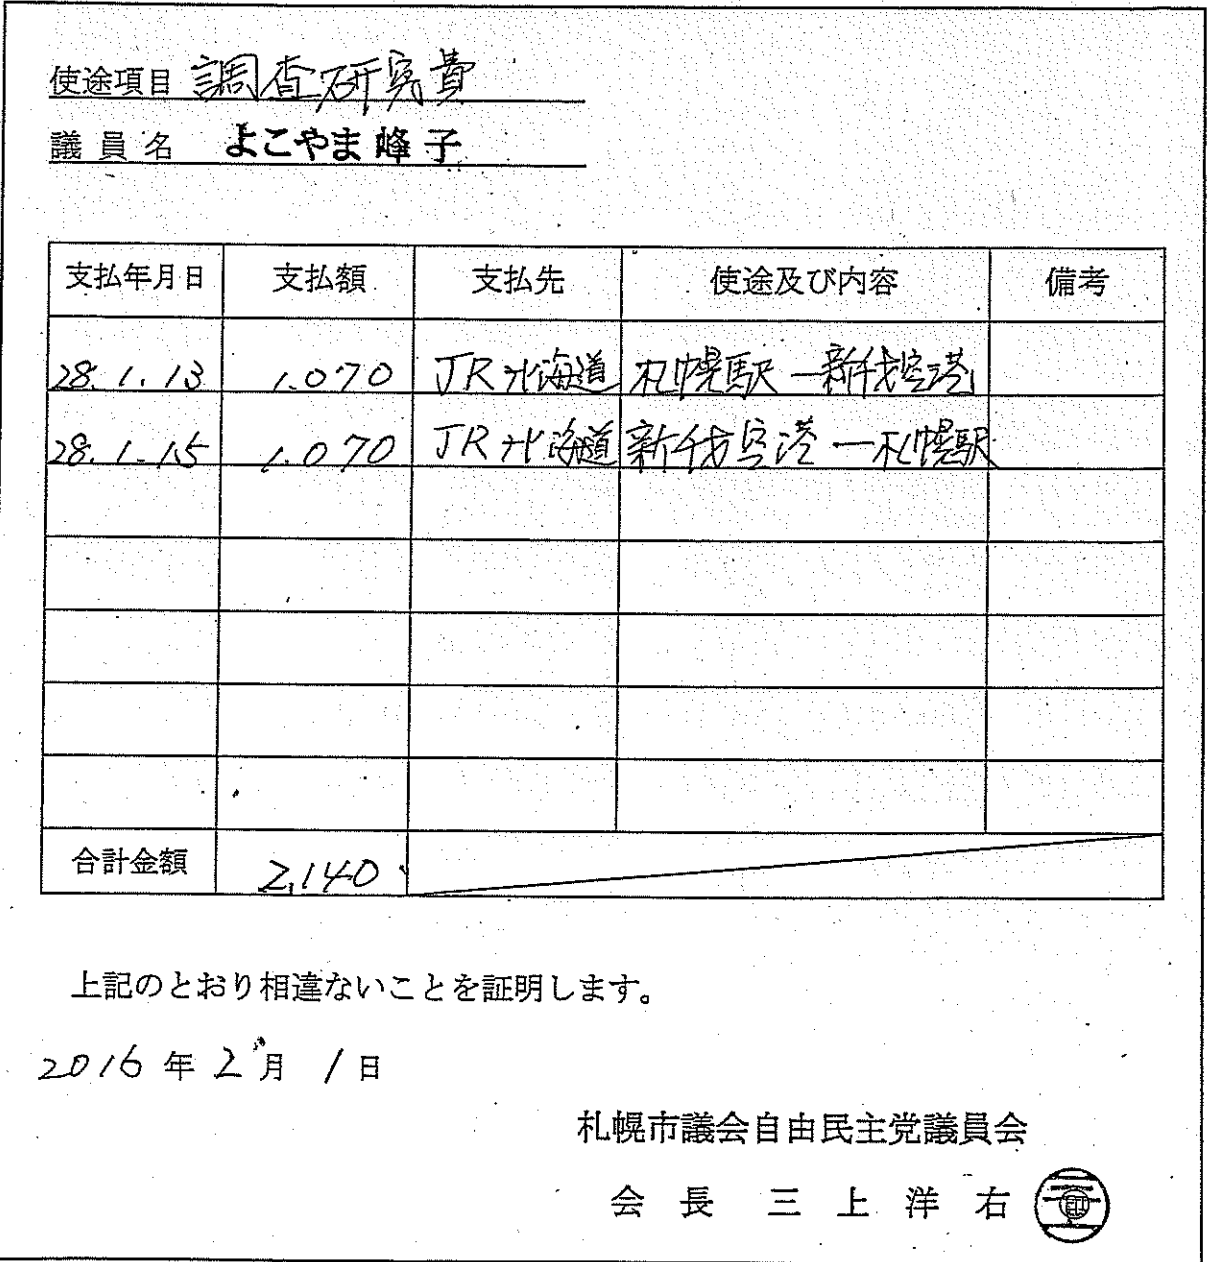 使途項目 調査研究費
議員名 よこやま峰子
支払年月日 支払額 支払先 使途及び内容 備考
28.1.13 1.070 JR北海道 札幌駅ー新千歳空港
28.1.15 1.070 JR北海道 新千歳空港ー札幌駅
合計金額 2,140
上記のとおり相違ないことを証明します。
2016年2月1日
札幌市議会自由民主党議員会
会長 三上洋右